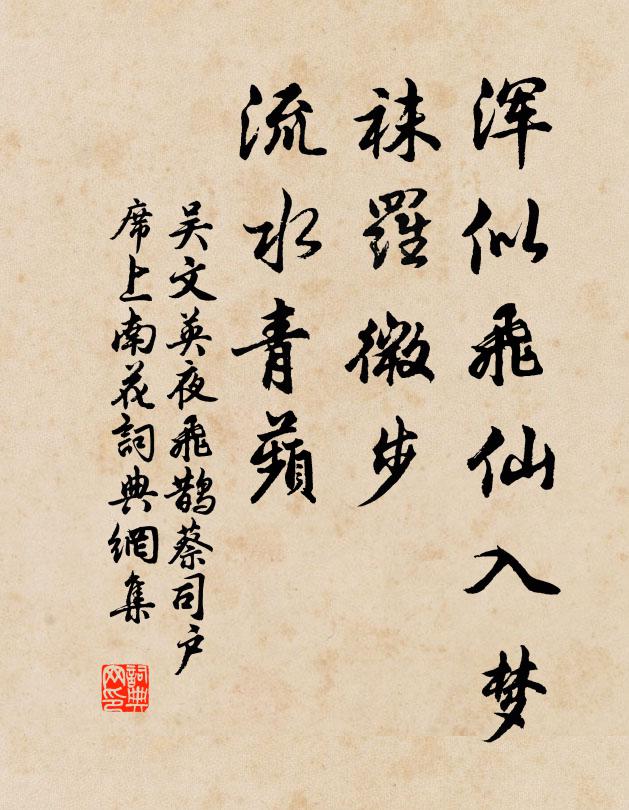 浑似飛仙入梦
袜羅微步
流水青蘋
吴文英夜飛鵲蔡司户
席上南花詞典網集
詞典网印